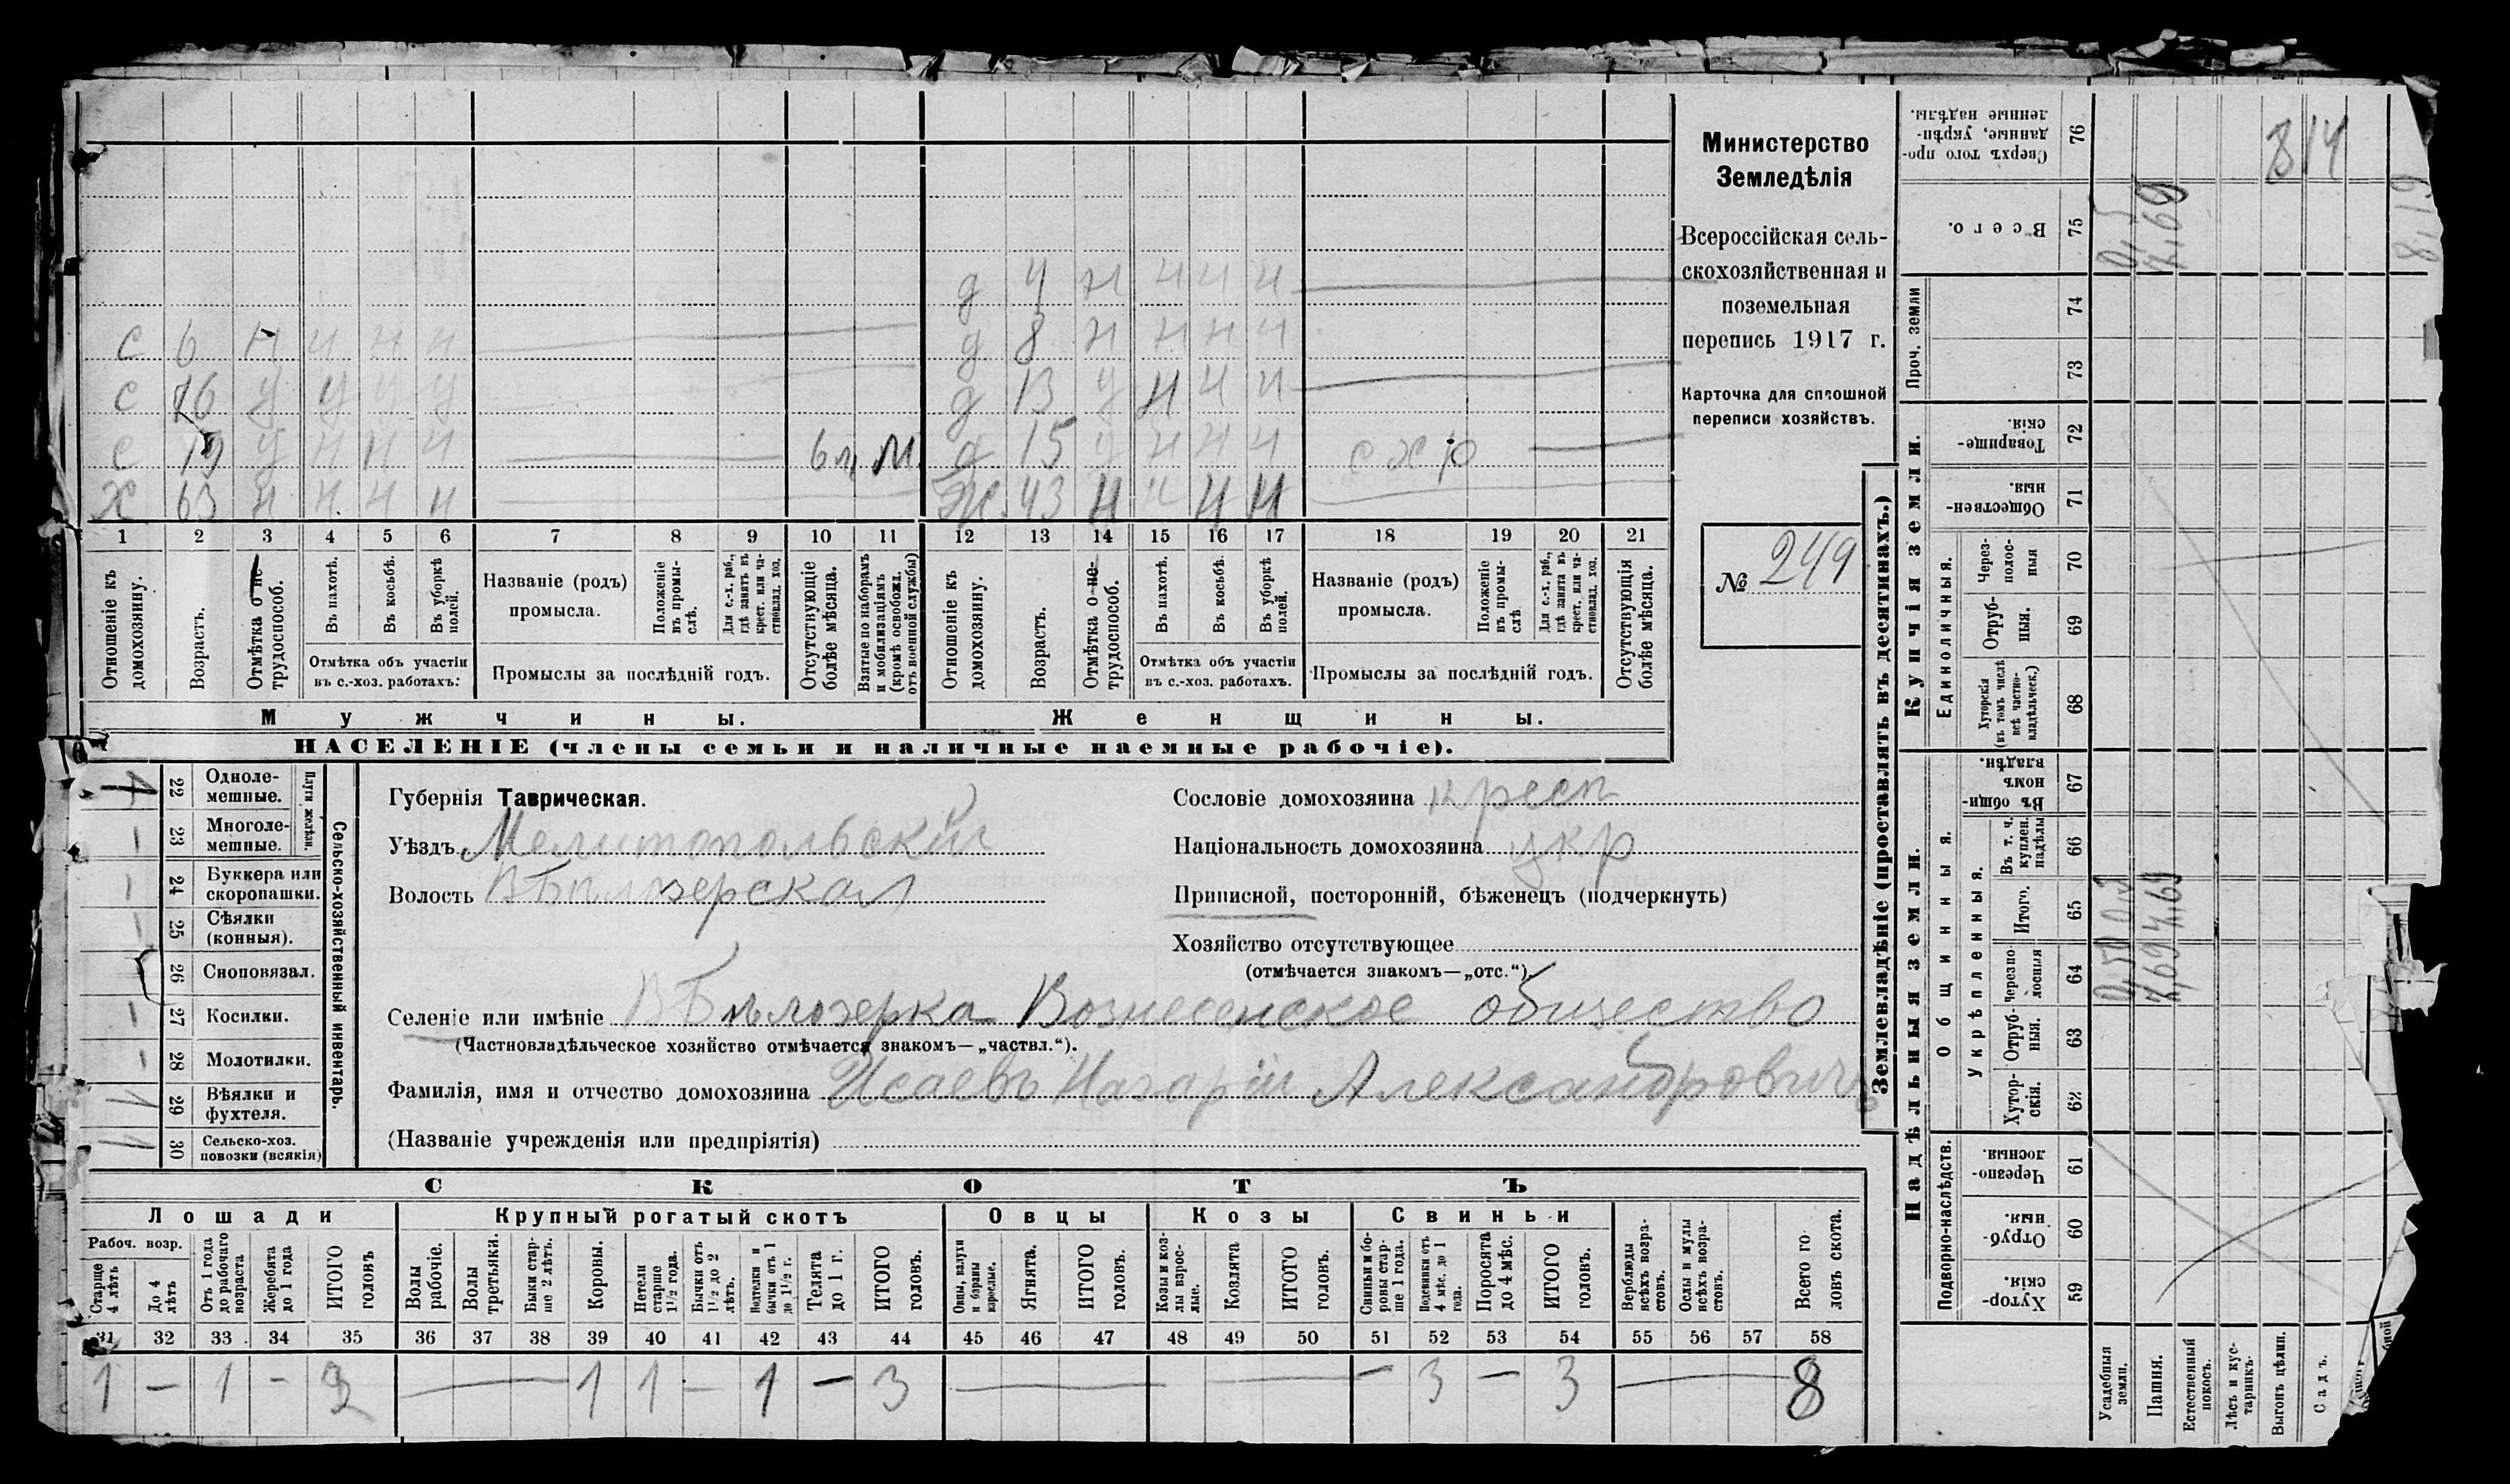 Министерство
Земледѣлія
Всероссійская сель-
скохозяйственная и
поземельная
перепись 1917 г.
Карточка для сплошной
переписи хозяйствъ.
№ 249
д 4 н н н н
с 6 н н н н
д 8 н н н н
с 16 у у у у
д 13 у н н н
с 19 у н н н 6 м М
д 15 у н н н с х р
х 63 н н н н
ж 43 н н н н
1 2 3 4 5 6 7 8 9 10 11 12 13 14 15 16 17 18 19 20 21
Отношеніе къ домохозяину.
Возрастъ.
Отмѣтка о не-трудоспособ.
Въ пахотѣ.
Въ косьбѣ.
Въ уборкѣ полей.
Отмѣтка объ участіи
въ с.-хоз. работахъ:
Названіе (родъ)
промысла.
Положеніе въ промы-слѣ.
Для с.-х. раб., гдѣ занятъ въ крест. или ча-стновлад. хоз.
Промыслы за послѣдній годъ.
Отсутствующіе болѣе мѣсяца.
Взятые по наборамъ и мобилизаціямъ (кромѣ освобожд. отъ военной службы)
Отношеніе къ домохозяину.
Возрастъ.
Отмѣтка о не-трудоспособ.
Въ пахотѣ.
Въ косьбѣ.
Въ уборкѣ полей.
Отмѣтка объ участіи
въ с.-хоз. работахъ.
Названіе (родъ)
промысла.
Положеніе въ промы-слѣ.
Для с.-х. раб., гдѣ занята въ крест. или ча-стновлад. хоз.
Промыслы за послѣдній годъ.
Отсутствующія болѣе мѣсяца.
Мужчины.
Женщины.
НАСЕЛЕНІЕ (члены семьи и наличные наемные рабочіе).
Сельско-хозяйственный инвентарь.
Плуги желѣзн.
22 Одноле-
мешные.
23 Многоле-
мешные.
24 Буккера или
скоропашки.
25 Сѣялки
(конныя).
26 Сноповязал.
27 Косилки.
28 Молотилки.
29 Вѣялки и
фухтеля.
30 Сельско-хоз.
повозки (всякія)
Губернія Таврическая.
Уѣздъ Мелитопольскій
Волость В Бѣлозерская
Сословіе домохозяина кресп
Національность домохозяина укр
Приписной, посторонній, бѣженецъ (подчеркнуть)
Хозяйство отсутствующее
(отмѣчается знакомъ—„отс.“).
Селеніе или имѣніе В Бѣлозерка Вознесенское общество
(Частновладѣльческое хозяйство отмѣчается знакомъ—„частвл.“).
Фамилія, имя и отчество домохозяина Исаевъ Назарій Александровичъ
(Названіе учрежденія или предпріятія)
СКОТЪ
Лошади
Крупный рогатый скотъ
Овцы
Козы
Свиньи
Рабоч. возр.
Старше 4 лѣтъ
До 4 лѣтъ
Отъ 1 года до рабочаго возраста
Жеребята до 1 года
ИТОГО головъ
Волы рабочіе.
Волы третьяки.
Быки стар-ше 2 лѣтъ.
Коровы.
Нетели старше 1½ года.
Бычки отъ 1½ до 2 лѣтъ.
Подтелки и бычки отъ 1 до 1½ г.
Телята до 1 г.
ИТОГО головъ.
Овцы, валухи и бараны взрослые.
Ягнята.
ИТОГО головъ.
Козы и коз-лы взрос-лые.
Козлята
ИТОГО головъ.
Свиньи и бо-ровы стар-ше 1 года.
Подсвинки отъ 4 мѣс. до 1 года.
Поросята до 4 мѣс.
ИТОГО головъ.
Верблюды всѣхъ возра-стовъ.
Ослы и мулы всѣхъ возра-стовъ.
Всего го-ловъ скота.
31 32 33 34 35 36 37 38 39 40 41 42 43 44 45 46 47 48 49 50 51 52 53 54 55 56 57 58
1 — 1 — 2 — 1 1 — 1 — 3 — — — 3 — 3 — 8
Землевладѣніе (проставлять въ десятинахъ.)
Надѣльныя земли.
Купчія земли.
Проч. земли
Подворно-наслѣдств.
Общинныя.
Укрѣпленныя.
Единоличныя.
Сверхъ того про-данные, укрѣп-ленные надѣлы. 76
Всего. 75
74
73
Товарище-скія. 72
Обществен-ныя. 71
Черезполос-ныя 70
Отруб-ныя. 69
Хуторскія (въ томъ числѣ всѣ частно-владѣльческ.) 68
Въ общин-номъ владѣн. 67
Въ т. ч. куплен. надѣлы 66
Итого. 65
Черезпо-лосныя 64
Отруб-ныя. 63
Хутор-скія. 62
Черезпо-лосныя. 61
Отруб-ныя. 60
Хутор-скія. 59
Усадебныя земли.
Пашня.
Естественный покосъ.
Лѣсъ и кус-тарникъ.
Выгонъ цѣлин.
Садъ.
0,5
7,69
8,19
0,5
7,69
0,5
7,69
814